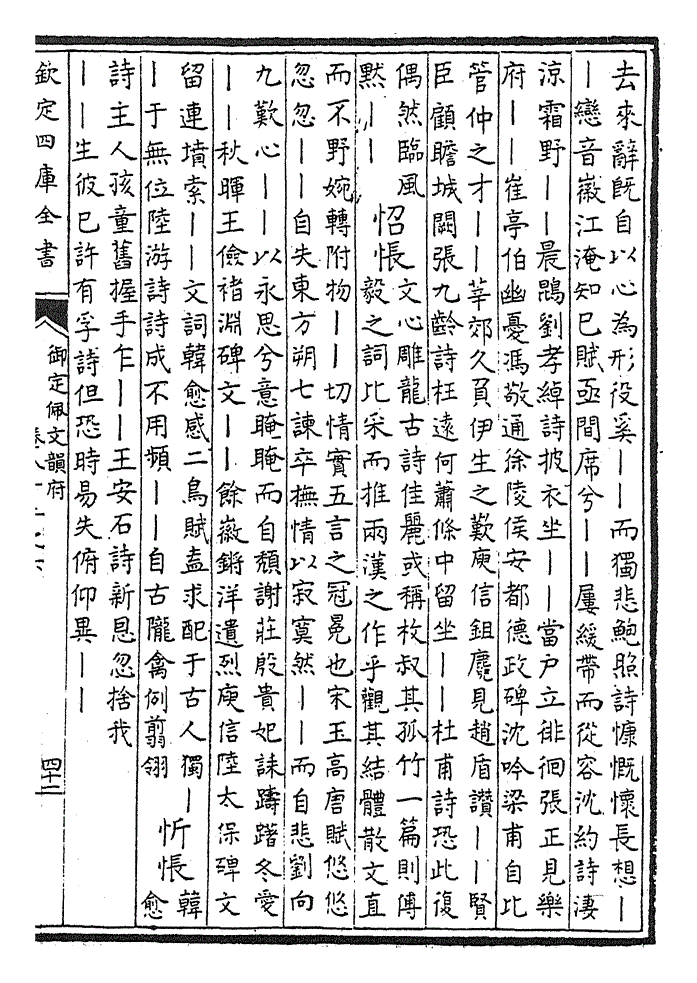 去來辭旣自以心為形役奚丨丨而獨悲鮑照詩慷慨懷長想丨
丨戀音徽江淹知己賦亟間席兮丨丨屢緩帶而從容沈約詩淒
涼霜野丨丨晨鵾劉孝綽詩披衣坐丨丨當户立徘徊張正見樂
府丨丨崔亭伯幽憂馮敬通徐陵侯安都德政碑沈吟梁甫自比
管仲之才丨丨莘郊久負伊生之歎庾信鉏麑見趙盾讚丨丨賢
臣顧瞻城闕張九齡詩枉遠何蕭條中留坐丨丨杜甫詩恐此復
偶然臨風丨丨 怊悵文心雕龍古詩佳麗或稱枚叔其孤竹一篇則傅
黙丨丨 毅之詞比采而推兩漢之作乎觀其結體散文直
而不野婉轉附物丨丨切情實五言之冠冕也宋玉高唐賦悠悠
忽忽丨丨自失東方朔七諫卒撫情以寂寞然丨丨而自悲劉向
九歎心丨丨以永思兮意晻晻而自頽謝莊殷貴妃誄躊躇冬愛
丨丨秋暉王儉褚淵碑文丨丨餘徽鏘洋遺烈庾信陸太保碑文
留連墳索丨丨文詞韓愈感二鳥賦盍求配于古人獨丨 忻悵韓
丨于無位陸游詩詩成不用頻丨丨自古隴禽例翦翎 愈
詩主人孩童舊握手乍丨丨王安石詩新恩忽捨我
丨丨生彼已許有孚詩但恐時易失俯仰異丨丨
欽定四庫全書
御定佩文韻府
四十二